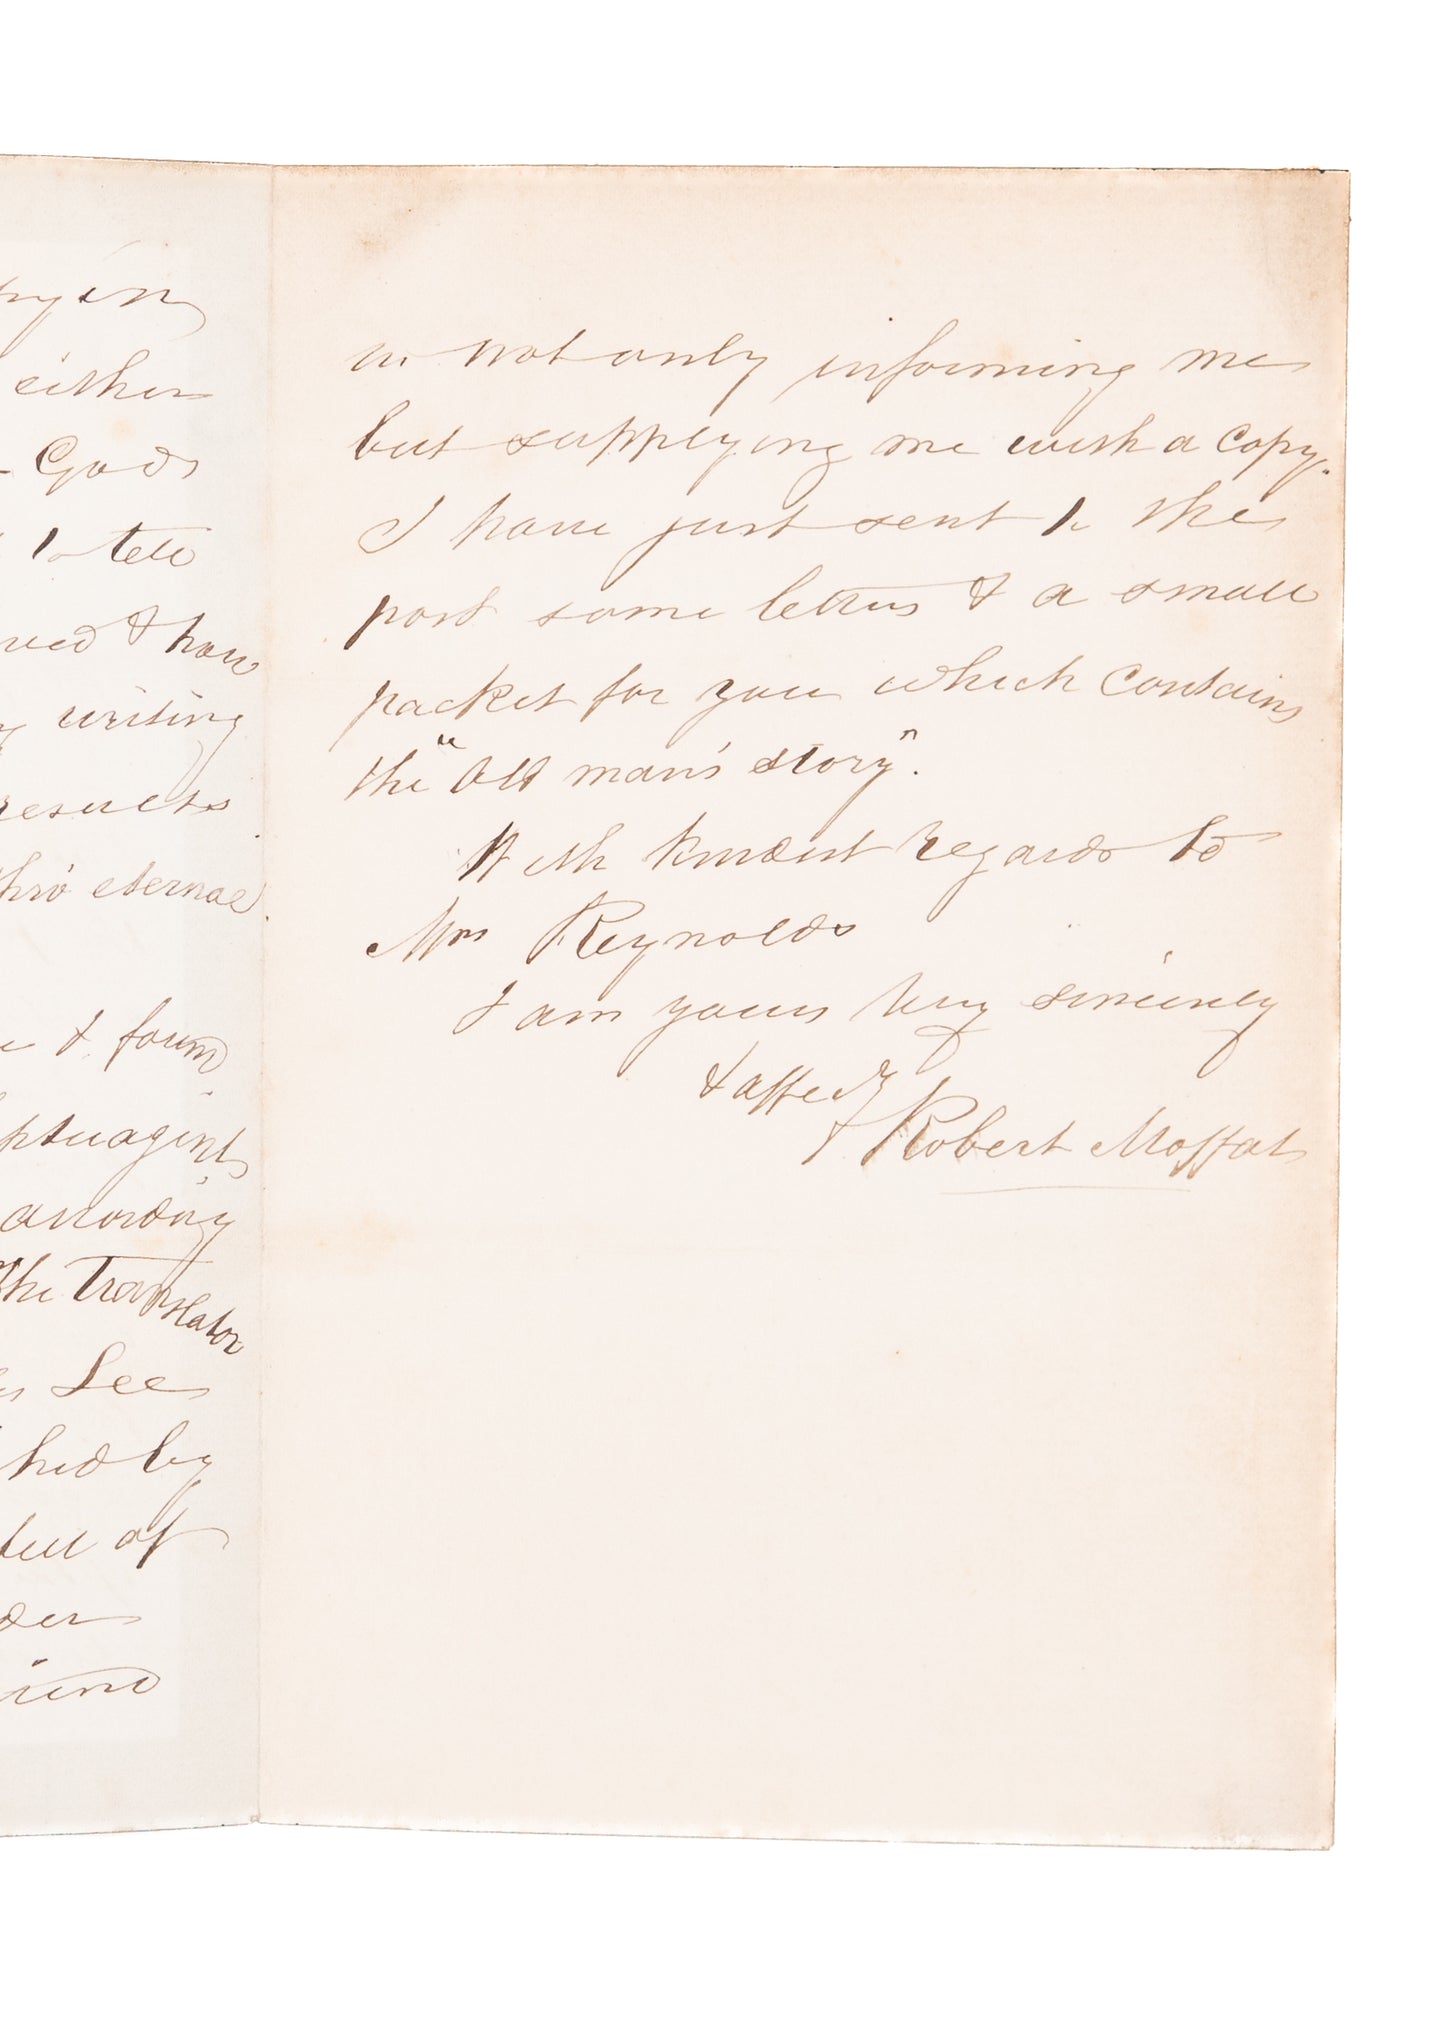 in
either
God
to tell
& how
writing
results
thro' eternal
& found
according
the translator
Lee
by
full of
in not only informing me
but supplying me with a copy.
I have just sent to the
post some letters & a small
packet for you which contains
the "Old man's story".
With kindest regards to
Mrs Reynolds
I am yours very sincerely
& affecly
Robert Moffat